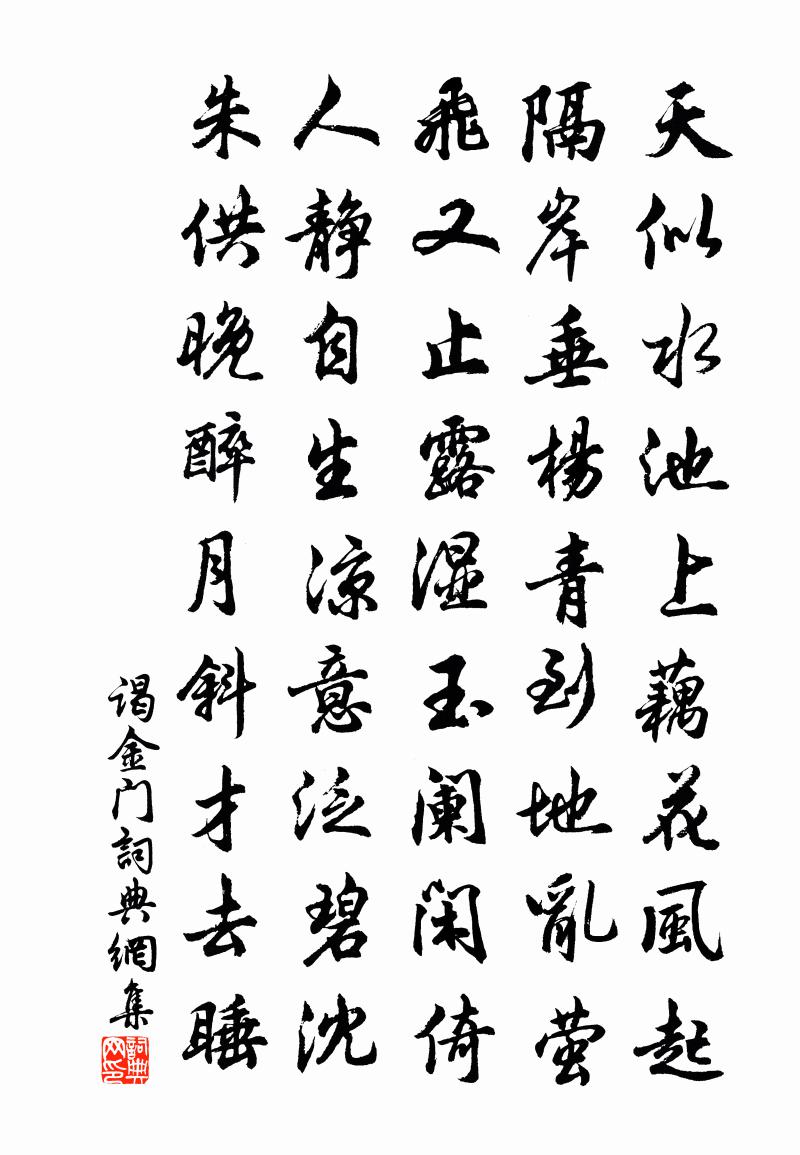 天似水池上藕花風起
隔岸垂楊青到地亂螢
飛又止露湿玉阑闲倚
人靜自生凉意泛碧沈
朱供晚醉月斜才去睡
谒金门詞典網集
詞典网印